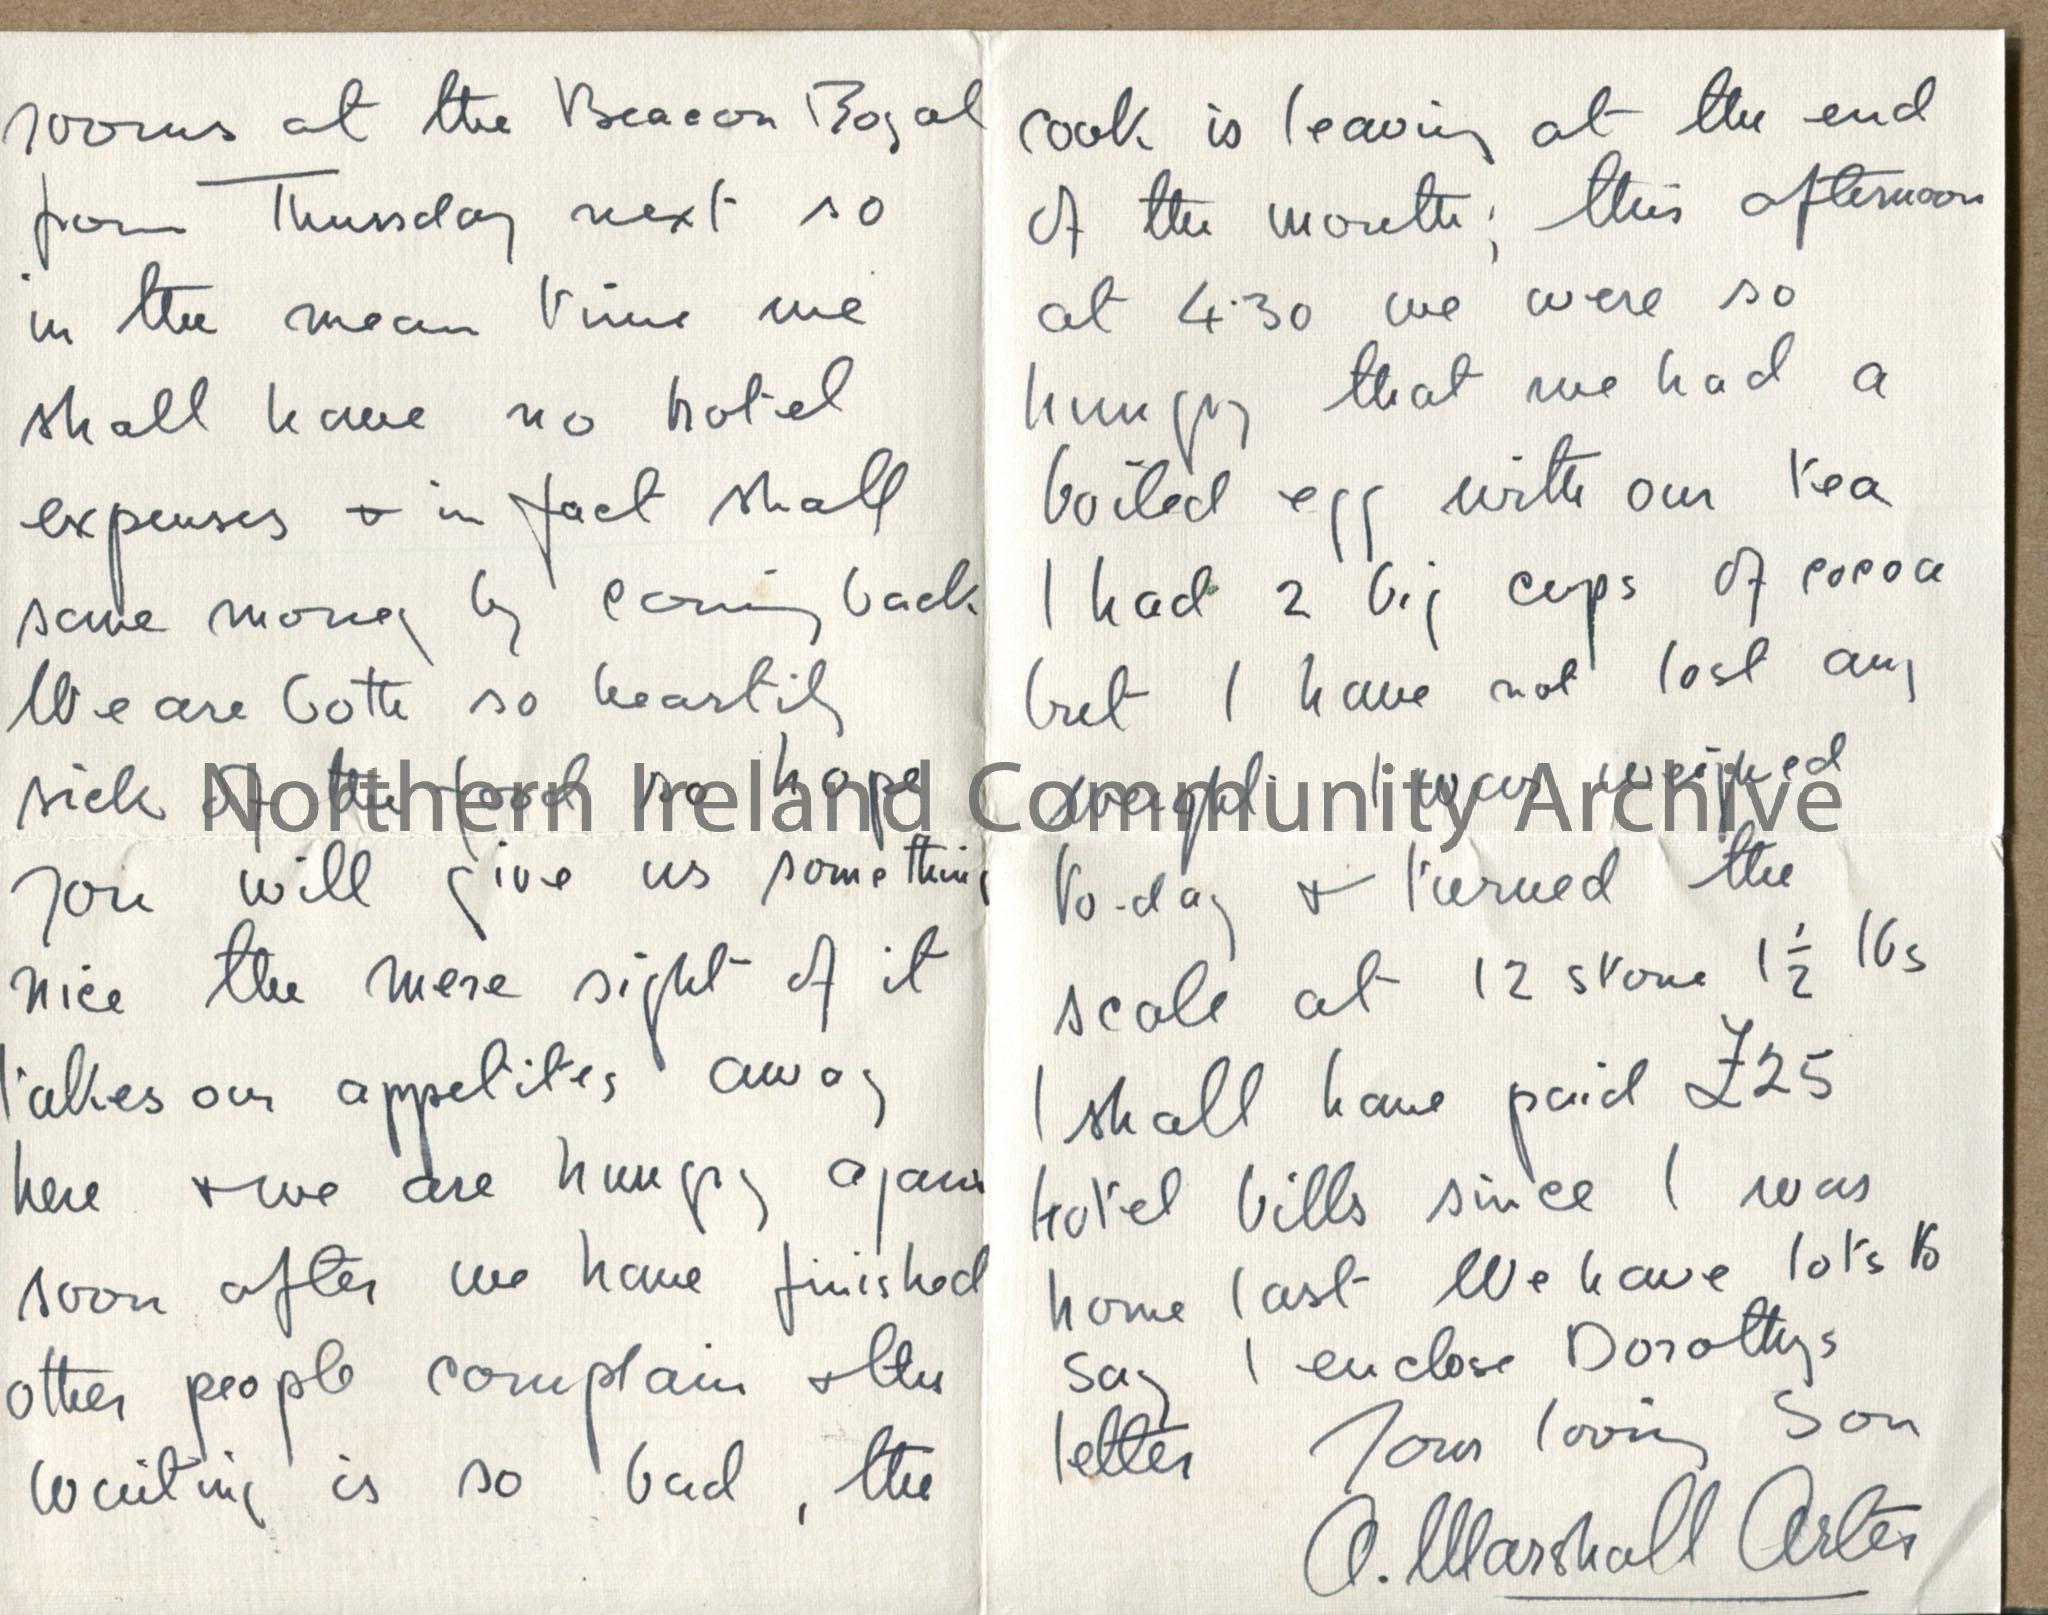 rooms at the Beacon Royal
from Thursday next so
in the mean time we
shall have no hotel
expenses & in fact shall
save money by coming back
We are both so heartily
sick of the food so hope
you will give us something
nice the mere sight of it
takes our appetites away
here & we are hungry again
soon after we have finished
other people complain & the
waiting is so bad, the
cook is leaving at the end
of the month; this afternoon
at 4.30 we were so
hungry that we had a
boiled egg with our tea
I had 2 big cups of cocoa
but I have not lost any
weight I was weighed
to-day & turned the
scale at 12 stone 1½ lbs
I shall have paid £25
hotel bills since I was
home last We have lots to
say I enclose Dorothys
letter Your loving Son
A. Marshall Arter
Northern Ireland Community Archive